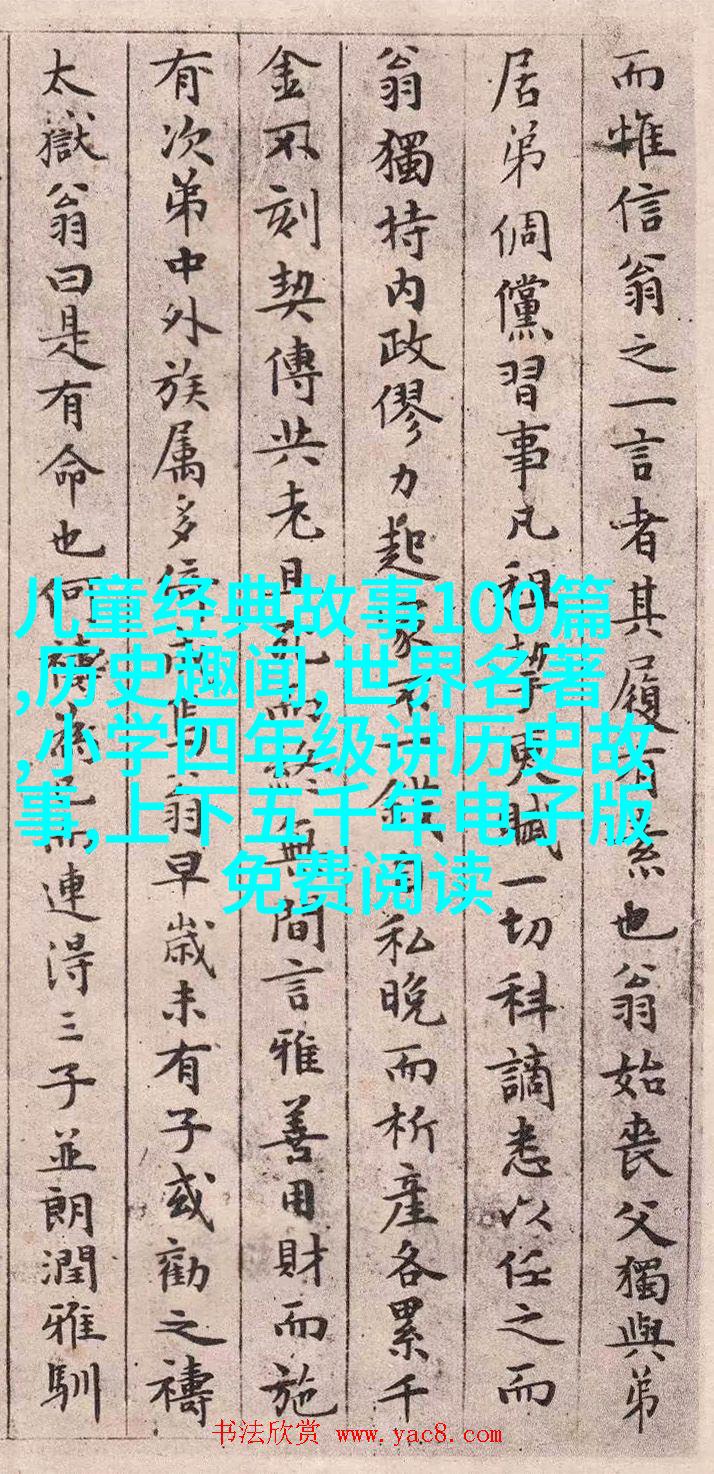 而惟信翁之一言者其履有素也翁始喪父獨與弟
居弟倜儻習事凡租挈更賦一切科謫悉以任之而
翁獨持内政僇力起家不一錢自私晚而析產各累千
金不刻契傳共老且死而終無間言雅善用財而施
有次第中外族属多倚翁早歲未有子或勸之禱
太嶽翁曰是有命也何禱為已而連得三子並朗潤雅馴
儿童经典故事100篇
,历史趣闻,世界名著
,小学四年级讲历史故
事,上下五千年电子版
免费阅读
书法欣赏 www.yac8.com